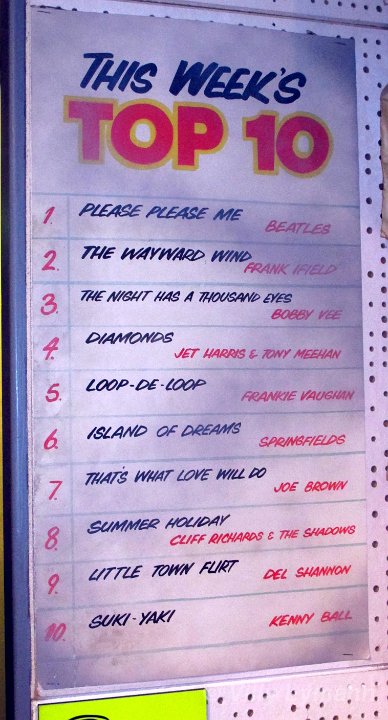 THIS WEEK'S
TOP 10
1. PLEASE PLEASE ME
BEATLES
2. THE WAYWARD WIND
FRANK IFIELD
3. THE NIGHT HAS A THOUSAND EYES
BOBBY VEE
4. DIAMONDS
JET HARRIS & TONY MEEHAN
5. LOOP-DE-LOOP
FRANKIE VAUGHAN
6. ISLAND OF DREAMS
SPRINGFIELDS
7. THAT'S WHAT LOVE WILL DO
JOE BROWN
8. SUMMER HOLIDAY
CLIFF RICHARDS & THE SHADOWS
9. LITTLE TOWN FLIRT DEL SHANNON
10. SUKI-YAKI KENNY BALL